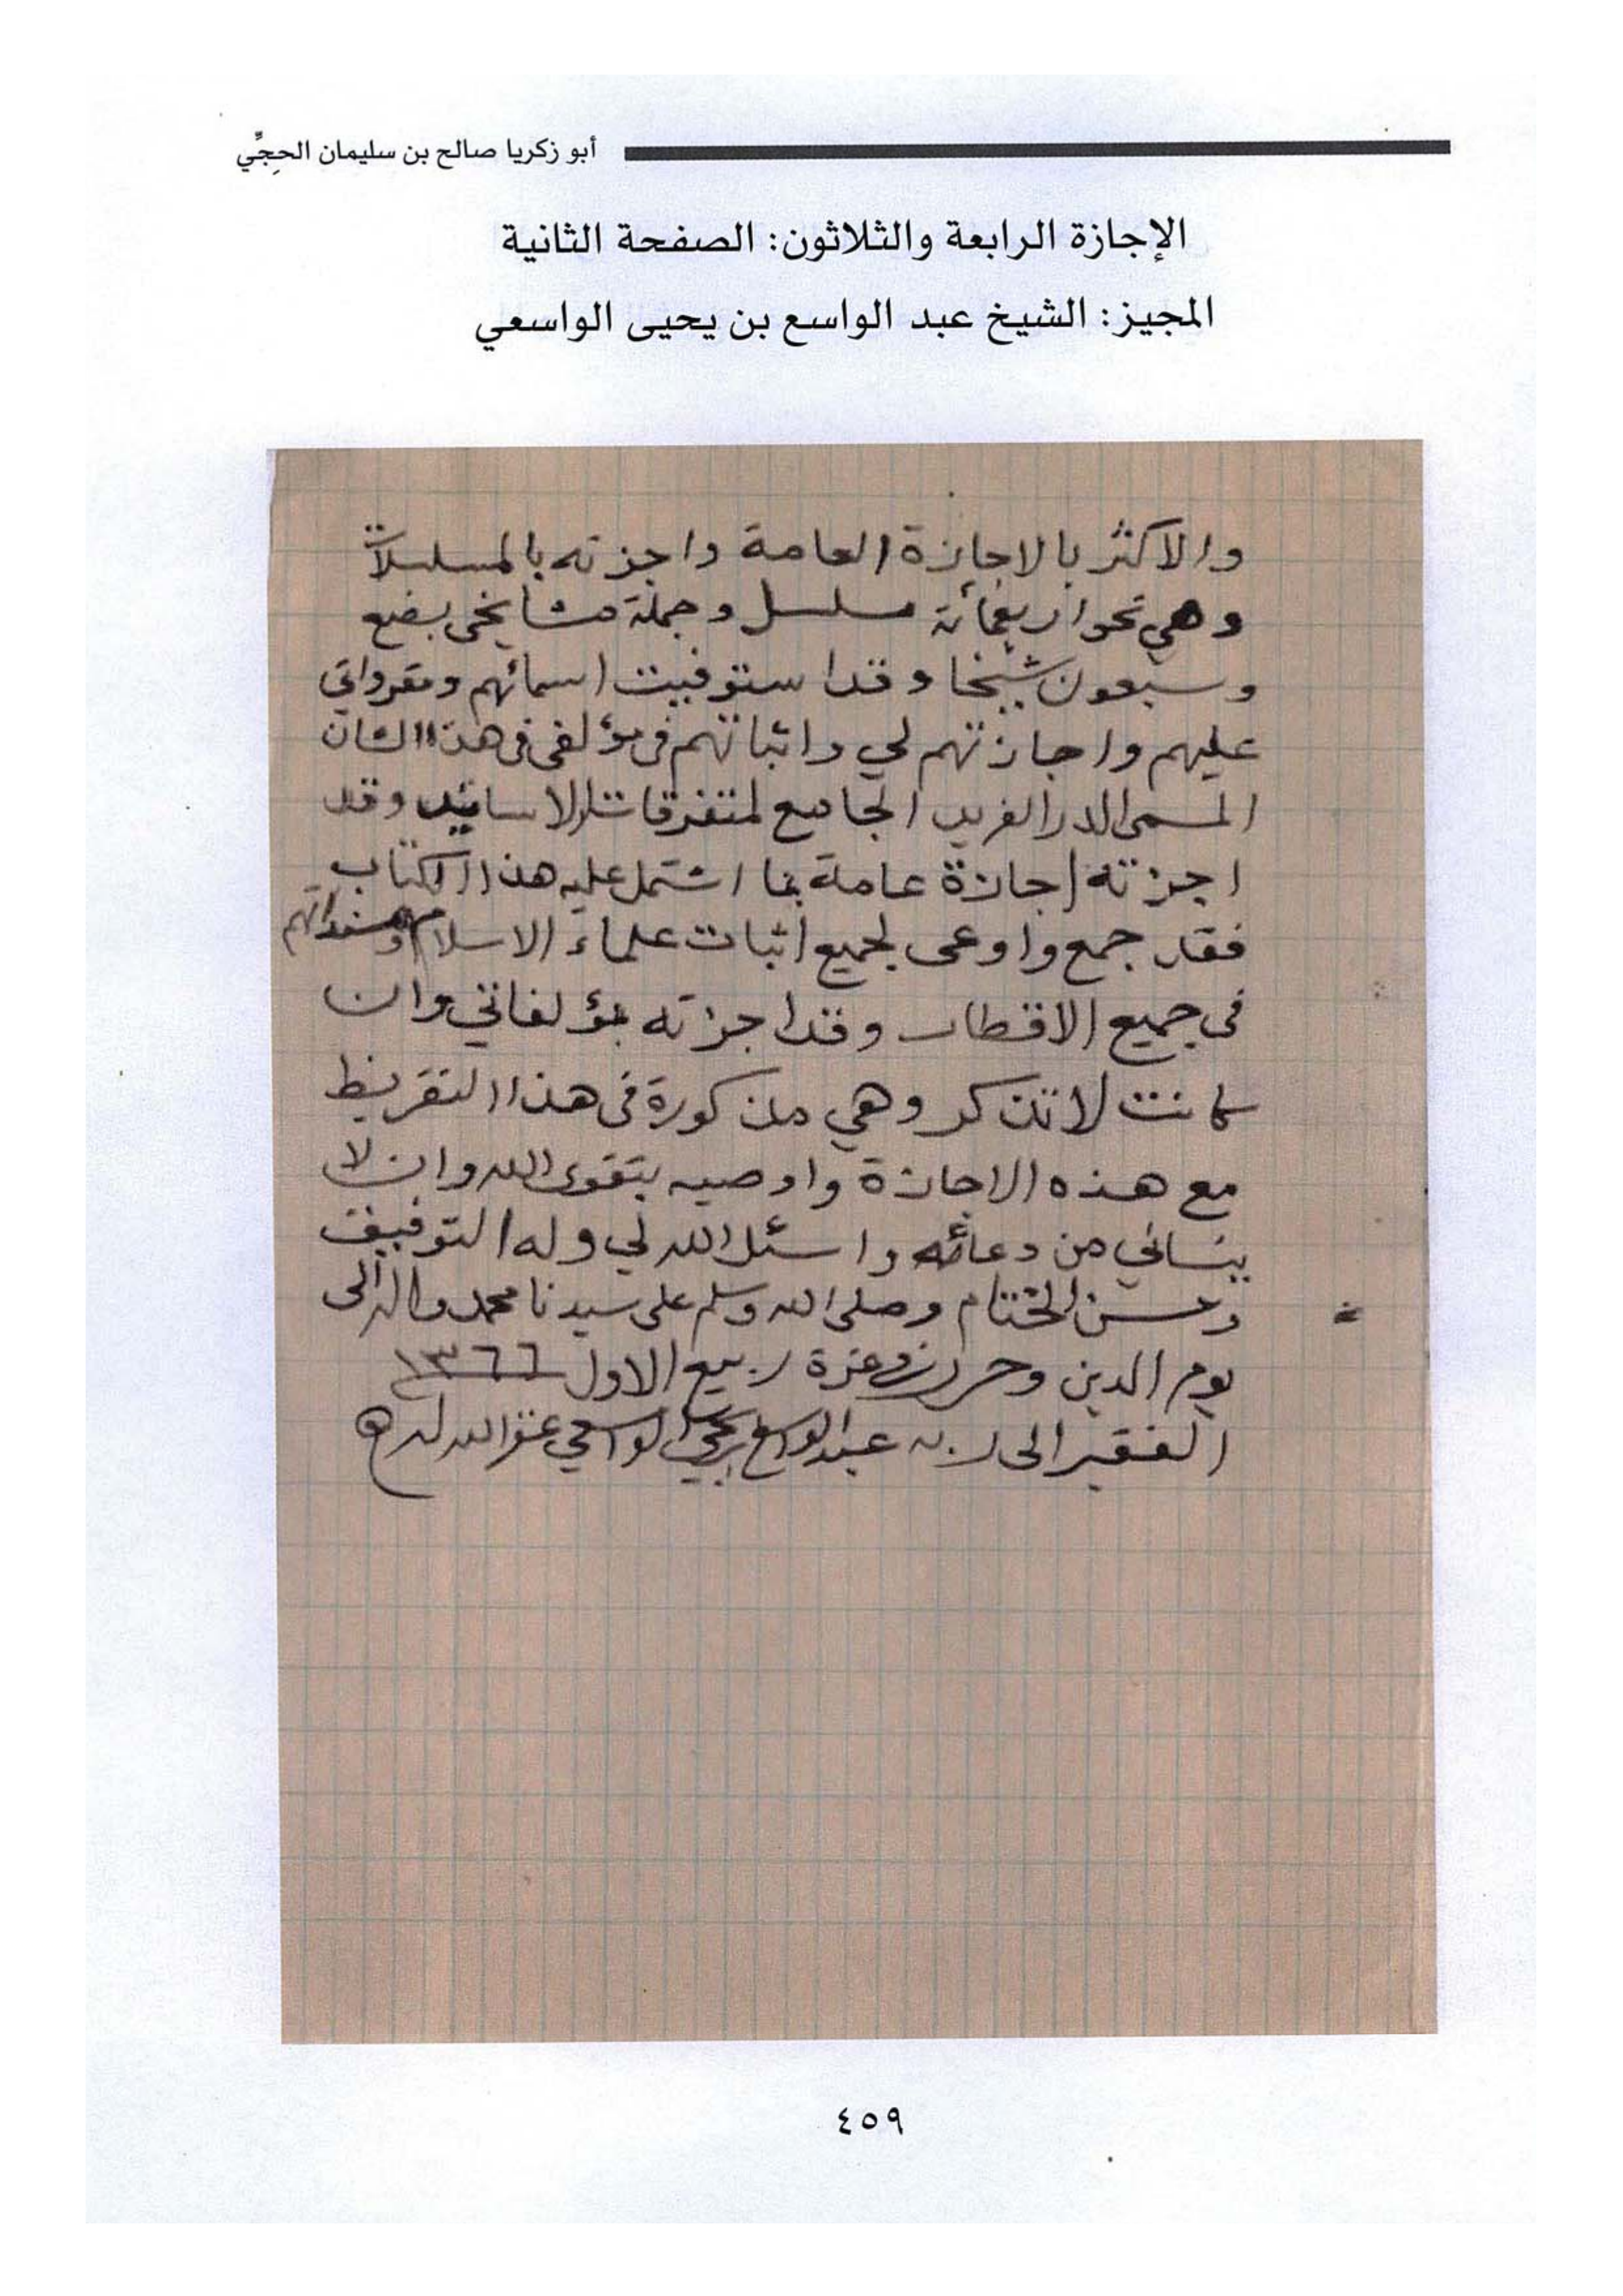 أبو زكريا صالح بن سليمان الحِجِّي
الإجازة الرابعة والثلاثون: الصفحة الثانية
المجيز: الشيخ عبد الواسع بن يحيى الواسعي
والاكثر بالاجازة العامة واجزته بالمسلسلات
وهي نحو اربعمائة مسلسل وجملة مشايخي بضع
وسبعون شيخا وقد استوفيت اسمائهم ومقرواتي
عليهم واجازتهم لي واثباتهم في مؤلفي في هذا الشان
المسمى الدر الفريد الجامع لمتفرقات الاسانيد وقد
اجزته اجازة عامة بما اشتمل عليه هذا الكتاب
فقد جمع واوعى لجميع اثبات علماء الاسلام ومسنداتهم
في جميع الاقطار وقد اجزته بمؤلفاتي وان
كانت لا تذكر وهي مذكورة في هذا التقريظ
مع هذه الاجازة واوصيه بتقوى الله وان لا
ينساني من دعائه واسئل الله لي وله التوفيق
وحسن الختام وصلى الله وسلم على سيدنا محمد واله الى
يوم الدين وحرر غرة ربيع الاول ١٣٦٦
الفقير الى ربه عبد الواسع بن يحيى الواسعي غفر الله له
٤٥٩